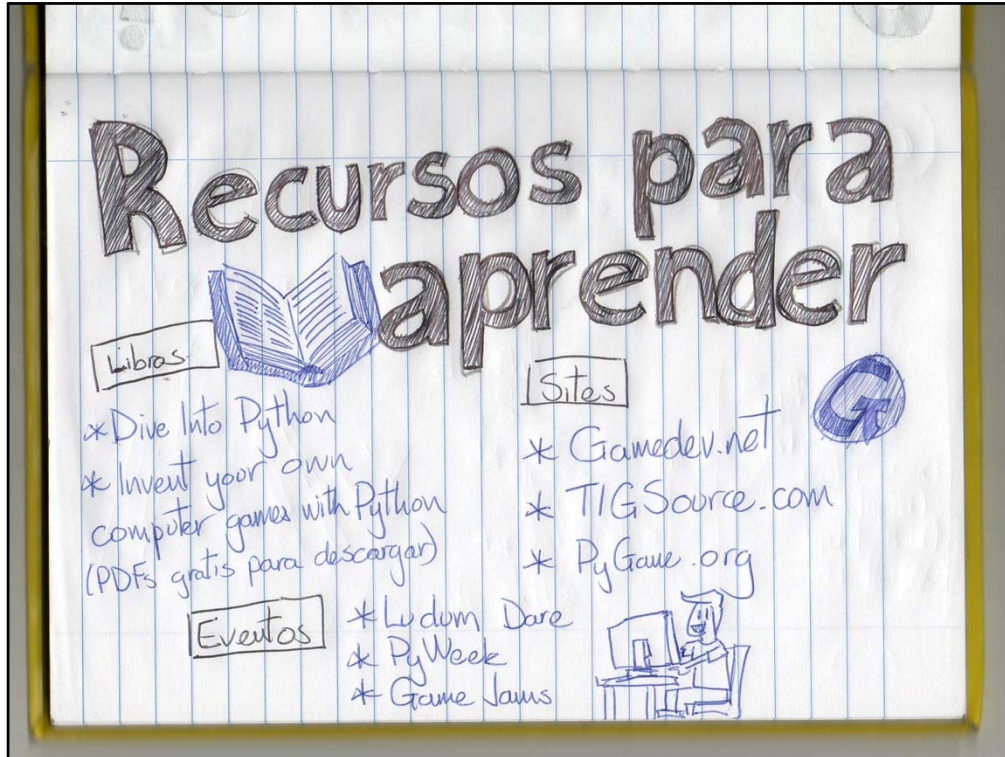 Recursos para
aprender
Libros
* Dive Into Python
* Invent your own
computer games with Python
(PDFs gratis para descargar)
Sites
G
* Gamedev.net
* TIGSource.com
* PyGame.org
Eventos
* Ludum Dare
* PyWeek
* Game Jams